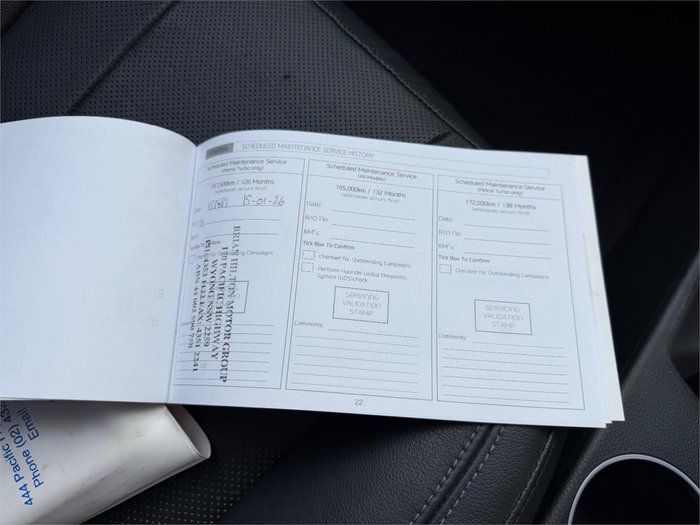 SCHEDULED MAINTENANCE SERVICE HISTORY
Scheduled Maintenance Service
(Petrol Turbo only)
157,500km / 126 Months
(whichever occurs first)
15-01-26
Tick Box To Confirm
Checked for Outstanding Campaigns
BRIAN HILTON MOTOR GROUP
PACIFIC HIGHWAY
WYONG NSW 2259
Scheduled Maintenance Service
(All Models)
165,000km / 132 Months
(whichever occurs first)
Date:
R/O No:
KM's:
Tick Box To Confirm
Checked for Outstanding Campaigns
Perform Hyundai Global Diagnostic
System (GDS)check
SERVICING
VALIDATION
STAMP
Comments:
Scheduled Maintenance Service
(Petrol Turbo only)
172,500km / 138 Months
(whichever occurs first)
Date:
R/O No:
KM's:
Tick Box To Confirm
Checked for Outstanding Campaigns
SERVICING
VALIDATION
STAMP
Comments:
22
444 Pacific
Phone (02) 43
Email: